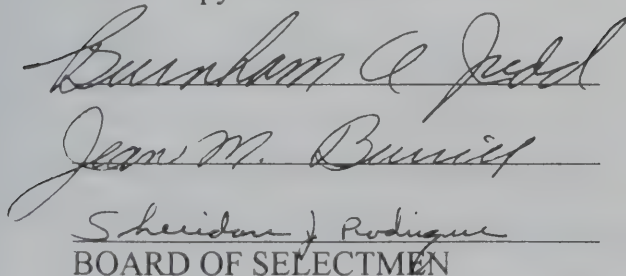 Burnham A Judd
Jean M. Burrill
Sheridan J Rodrigue
BOARD OF SELECTMEN